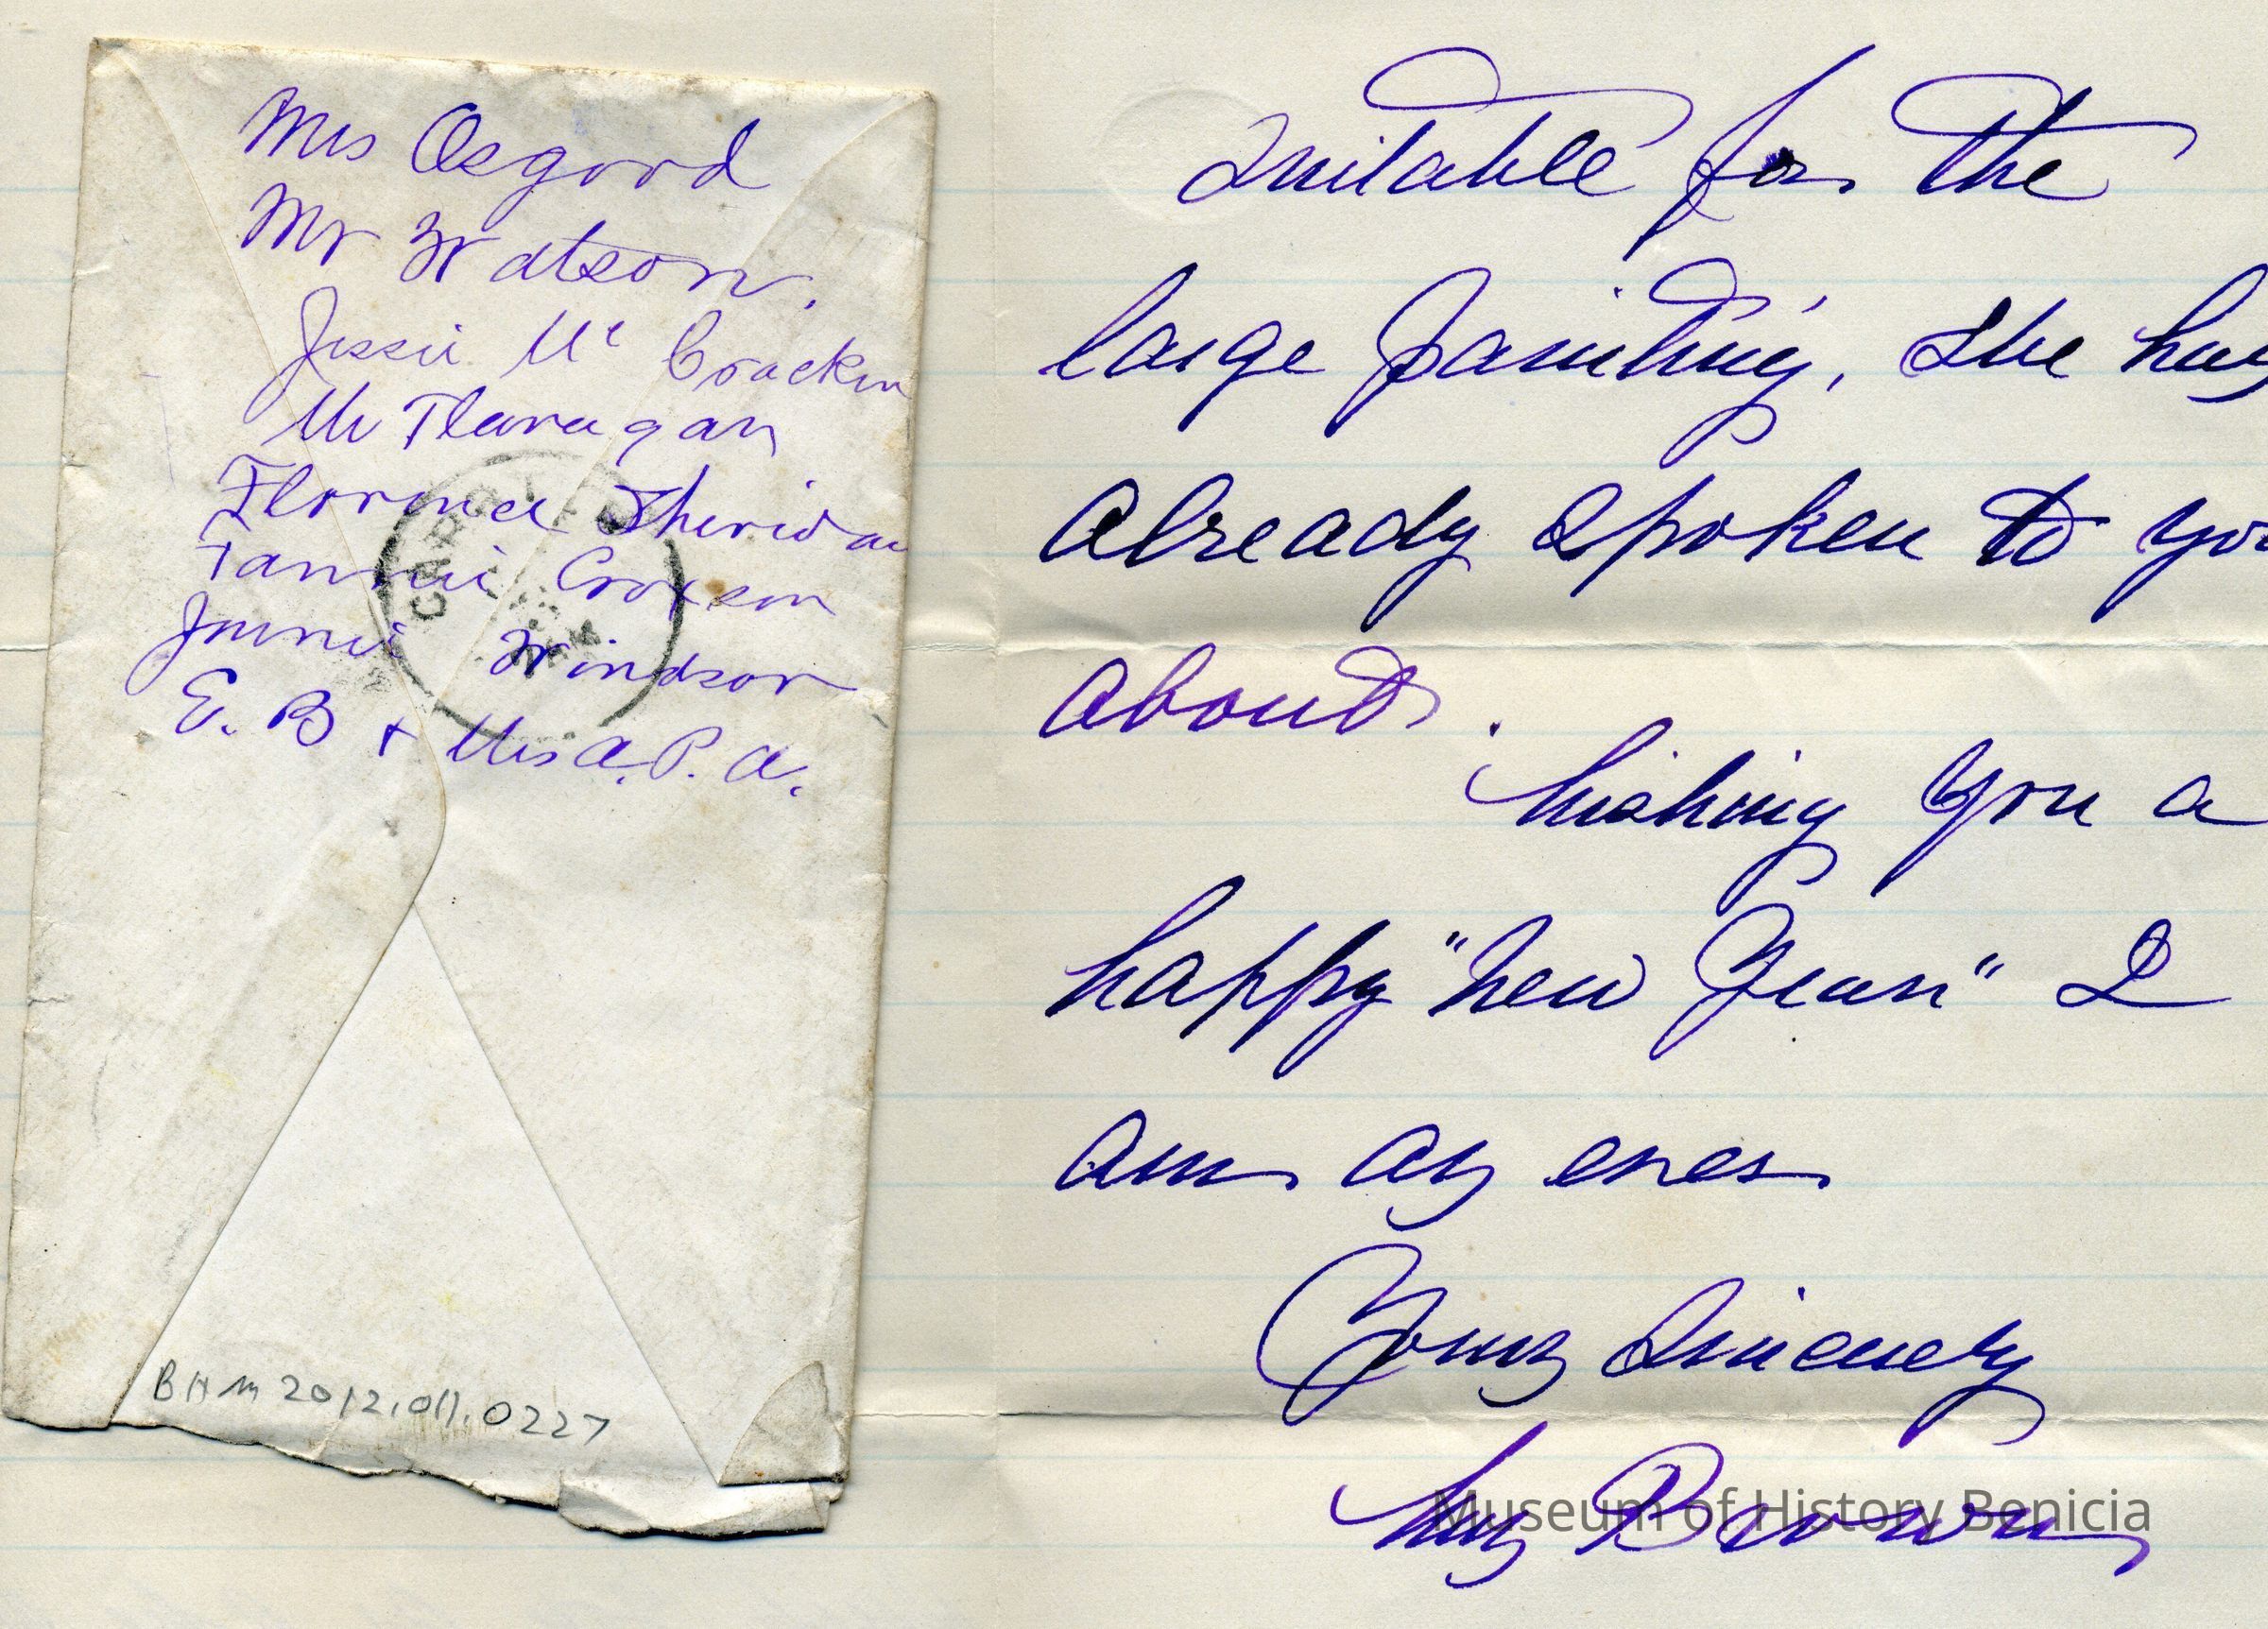 Mrs Osgood
Mr Watson.
Jessie Mc Cracken
Mr Flanagan
Florence Sheridan
Fannie Croxson
Jennie Windsor
E. B + Mrs A. P. A.
BHM 2012.011.0227
Suitable for the
large painting, she has
already spoken to you
about.
Wishing you a
happy "New Year" I
am as ever
Yours Sincerely
Mrs Brown
Museum of History Benicia